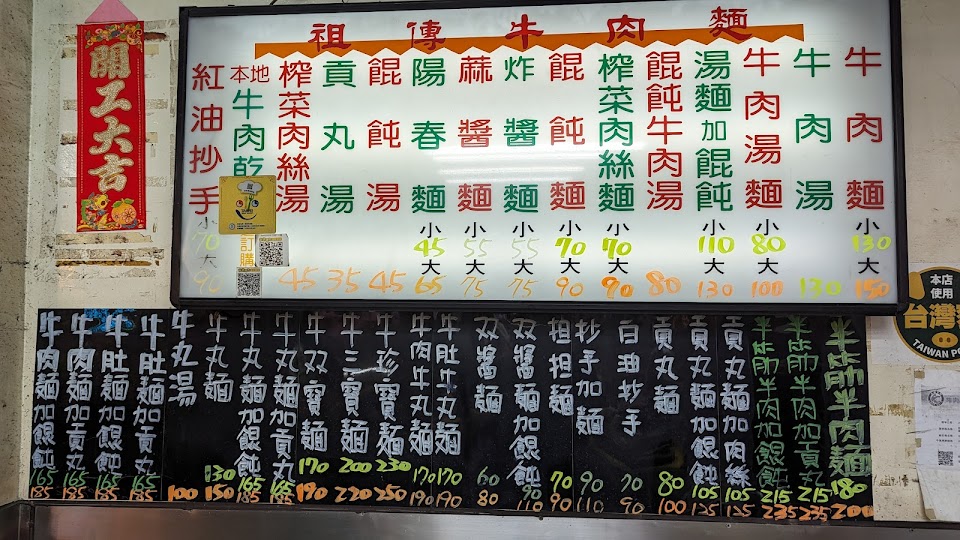 祖傳牛肉麵
開工大吉
牛肉麵 小 130 大 150
牛肉湯 130
牛肉湯麵 小 80 大 100
湯麵加餛飩 小 110 大 130
餛飩牛肉湯 80
榨菜肉絲麵 小 70 大 90
餛飩麵 小 70 大 90
炸醬麵 小 55 大 75
麻醬麵 小 55 大 75
陽春麵 小 45 大 65
餛飩湯 45
貢丸湯 35
榨菜肉絲湯 45
本地牛肉乾 訂購
紅油抄手 小 70 大 90
半筋半肉麵 180 200
半筋半肉加貢丸 215 235
半筋半肉加餛飩 215 235
貢丸麵加肉絲 105 125
貢丸麵加餛飩 105 125
貢丸麵 80 100
白油抄手 70 90
抄手加麵 90 110
担担麵 70 90
双醬麵加餛飩 90 110
双醬麵 60 80
牛肚牛丸麵 170 190
牛肉牛丸麵 170 190
牛珍寶麵 230 250
牛三寶麵 200 220
牛双寶麵 170 190
牛丸麵加貢丸 165 185
牛丸麵加餛飩 165 185
牛丸麵 130 150
牛丸湯 100
牛肚麵加貢丸 165 185
牛肚麵加餛飩 165 185
牛肉麵加貢丸 165 185
牛肉麵加餛飩 165 185
本店
使用
台灣
TAIWAN PO